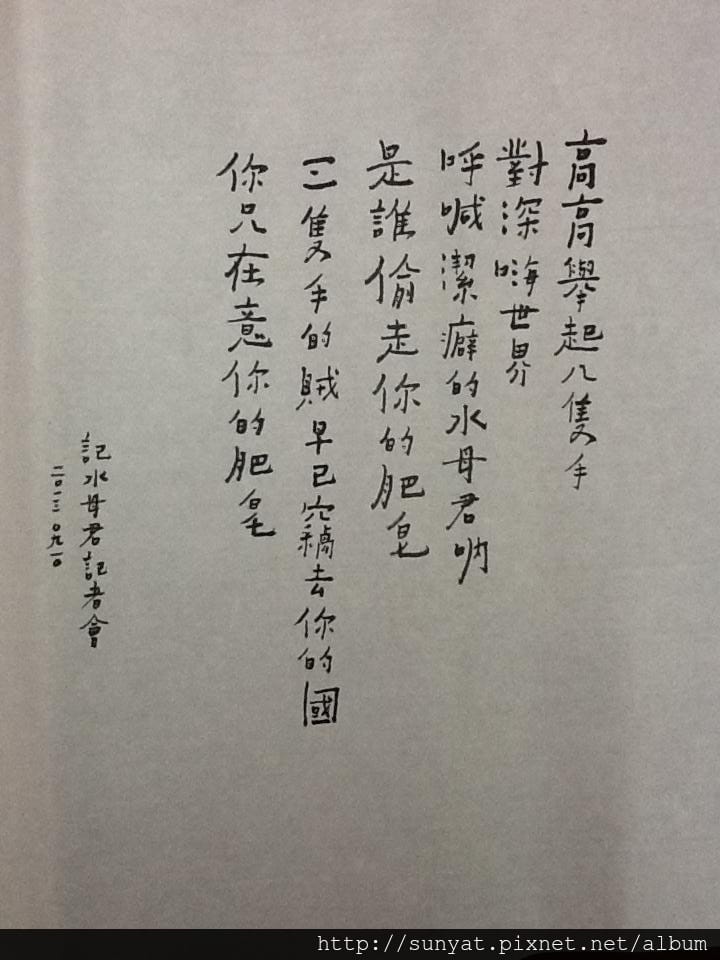 高高舉起八隻手
對深嗨世界
呼喊潔癖的水母君吶
是誰偷走你的肥皂
三隻手的賊早已竊去你的國
你只在意你的肥皂
記水母君記者會
二〇一三〇九一〇
http://sunyat.pixnet.net/album